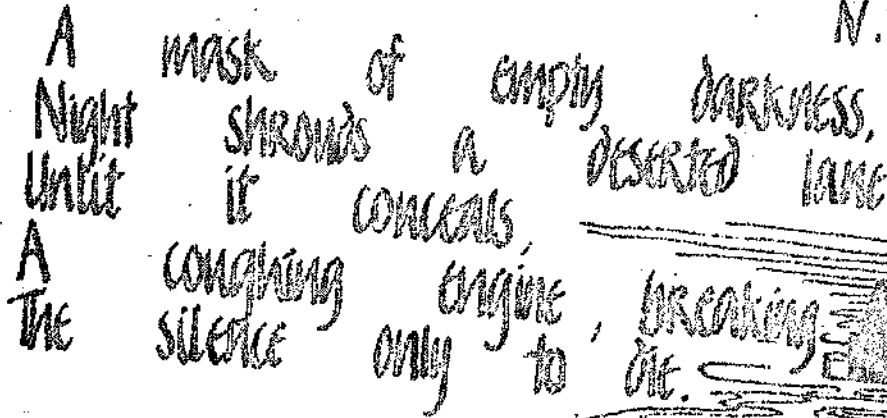 N.
A mask of empty darkness,
Night shrouds a deserted lane
Unlit it conceals,
A coughing engine, breaking
The silence only to die.